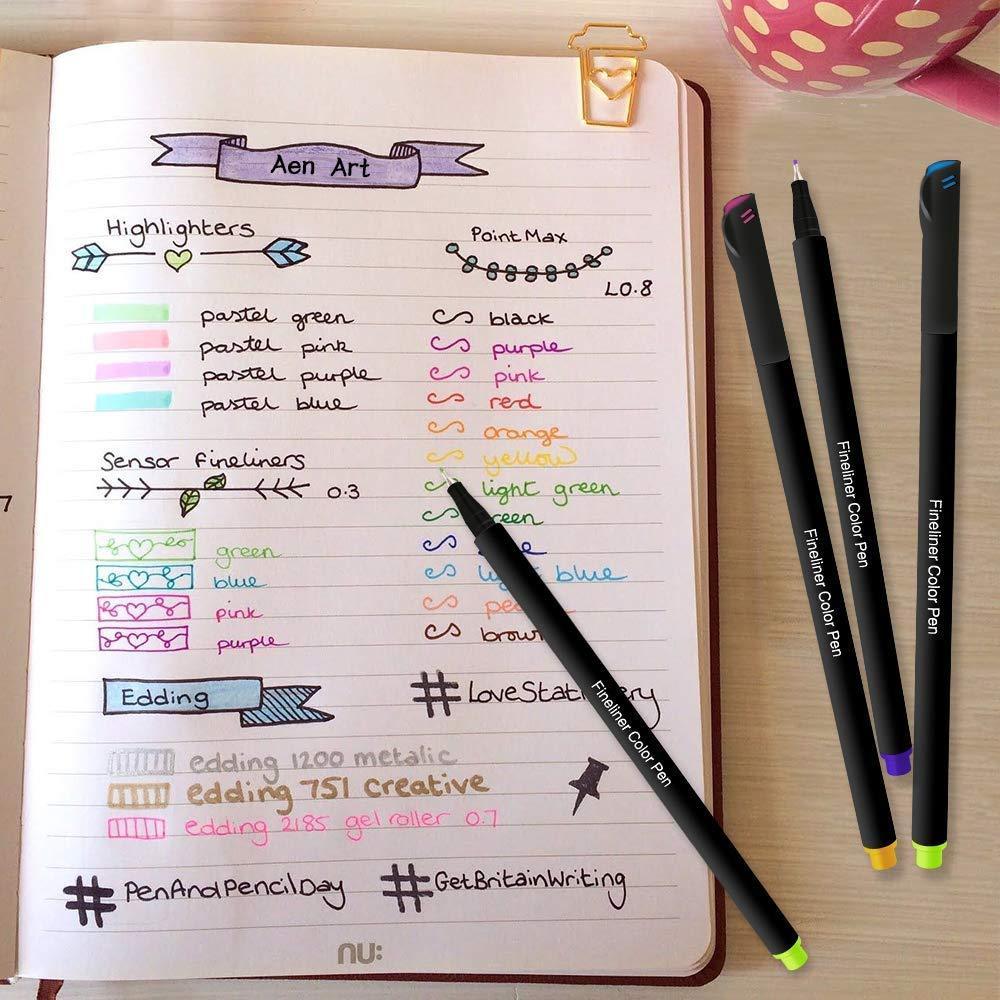 Aen Art
Highlighters
pastel green
pastel pink
pastel purple
pastel blue
Sensor Fineliners
0.3
green
blue
pink
purple
Edding
edding 1200 metalic
edding 751 creative
edding 2185 gel roller 0.7
#PenAndPencilDay
Point Max
L0.8
black
purple
pink
red
orange
yellow
light green
blue
brown
#GetBritainWriting
nu:
7
Fineliner Color Pen
Fineliner Color Pen
Fineliner Color Pen
Fineliner Color Pen